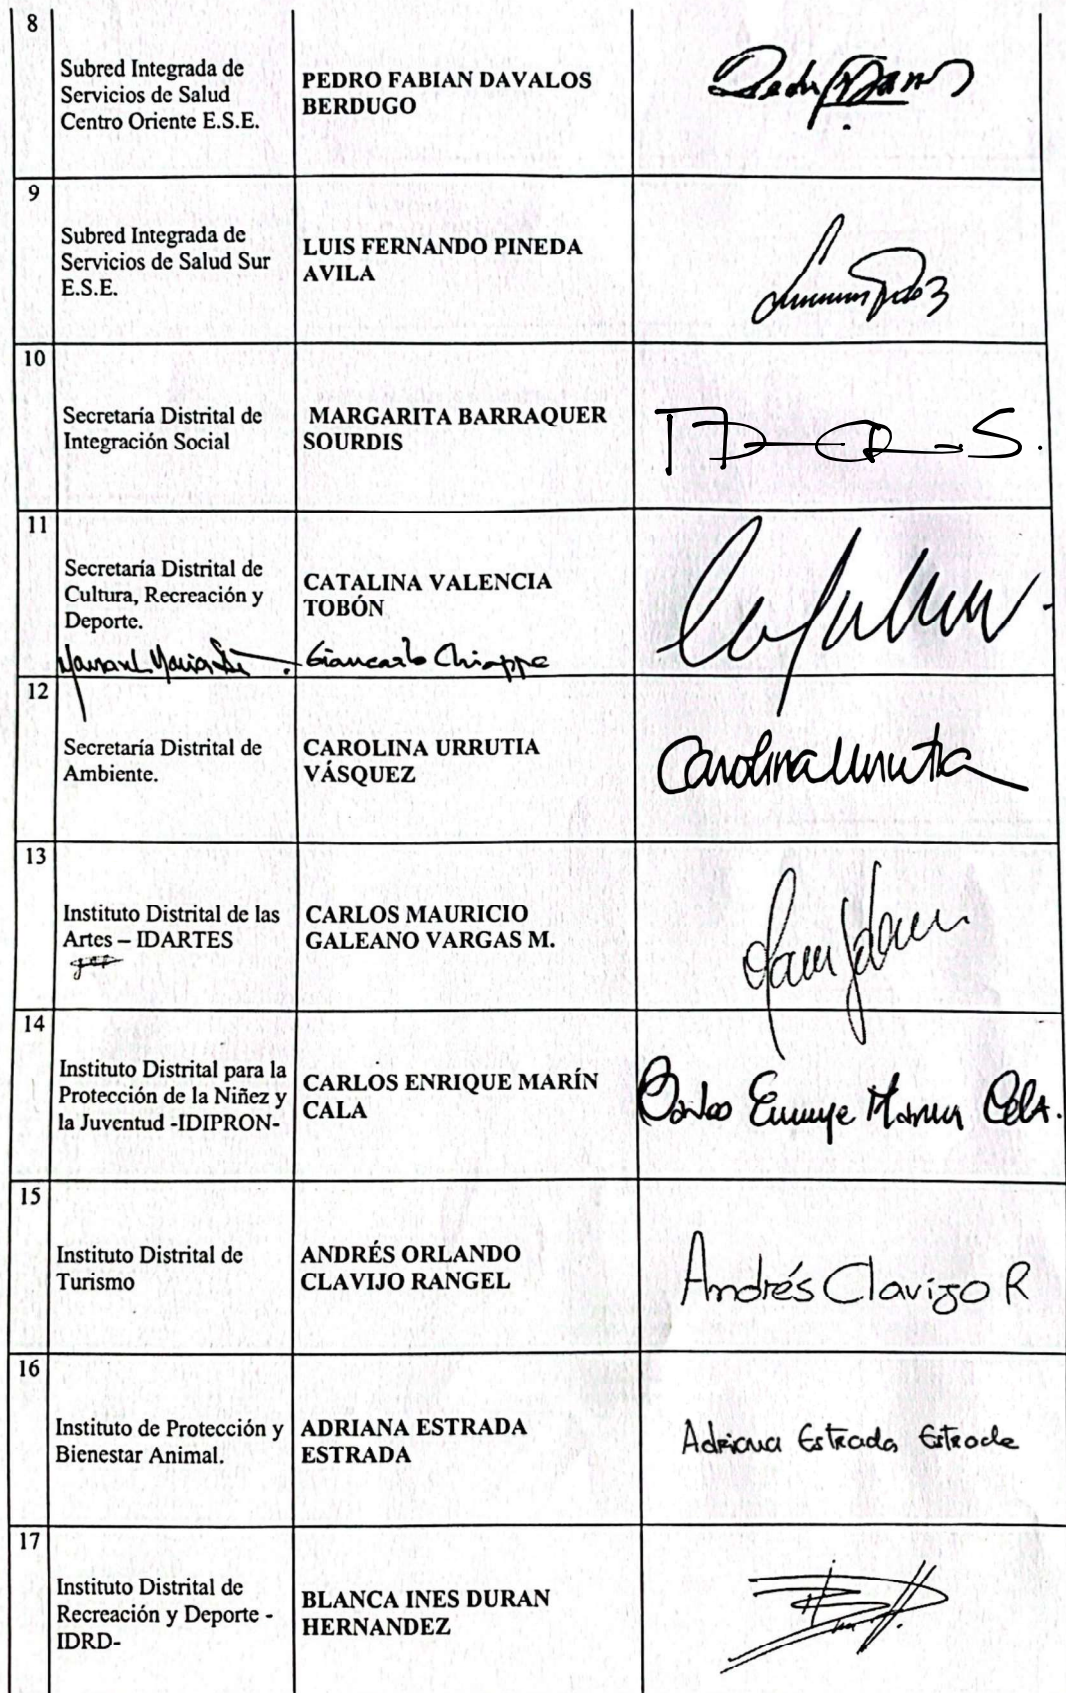 8
Subred Integrada de
Servicios de Salud
Centro Oriente E.S.E.
PEDRO FABIAN DAVALOS
BERDUGO
9
Subred Integrada de
Servicios de Salud Sur
E.S.E.
LUIS FERNANDO PINEDA
AVILA
10
Secretaría Distrital de
Integración Social
MARGARITA BARRAQUER
SOURDIS
11
Secretaría Distrital de
Cultura, Recreación y
Deporte.
CATALINA VALENCIA
TOBÓN
Giancarlo Chiappe
12
Secretaría Distrital de
Ambiente.
CAROLINA URRUTIA
VÁSQUEZ
Carolina Urrutia
13
Instituto Distrital de las
Artes – IDARTES
CARLOS MAURICIO
GALEANO VARGAS M.
14
Instituto Distrital para la
Protección de la Niñez y
la Juventud -IDIPRON-
CARLOS ENRIQUE MARÍN
CALA
Carlos Enrique Marin Cala.
15
Instituto Distrital de
Turismo
ANDRÉS ORLANDO
CLAVIJO RANGEL
Andrés Clavijo R
16
Instituto de Protección y
Bienestar Animal.
ADRIANA ESTRADA
ESTRADA
Adriana Estrada Estrada
17
Instituto Distrital de
Recreación y Deporte -
IDRD-
BLANCA INES DURAN
HERNANDEZ